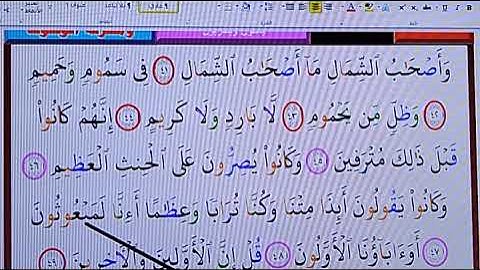 وَأَصْحَٰبُ ٱلشِّمَالِ مَآ أَصْحَٰبُ ٱلشِّمَالِ ٤١ فِى سَمُومٍ وَحَمِيمٍ
٤٢ وَظِلٍّ مِّن يَحْمُومٍ ٤٣ لَّا بَارِدٍ وَلَا كَرِيمٍ ٤٤ إِنَّهُمْ كَانُوا۟
قَبْلَ ذَٰلِكَ مُتْرَفِينَ ٤٥ وَكَانُوا۟ يُصِرُّونَ عَلَى ٱلْحِنثِ ٱلْعَظِيمِ ٤٦
وَكَانُوا۟ يَقُولُونَ أَئِذَا مِتْنَا وَكُنَّا تُرَابًا وَعِظَٰمًا أَءِنَّا لَمَبْعُوثُونَ
٤٧ أَوَءَابَآؤُنَا ٱلْأَوَّلُونَ ٤٨ قُلْ إِنَّ ٱلْأَوَّلِينَ وَٱلْءَاخِرِينَ ٤٩